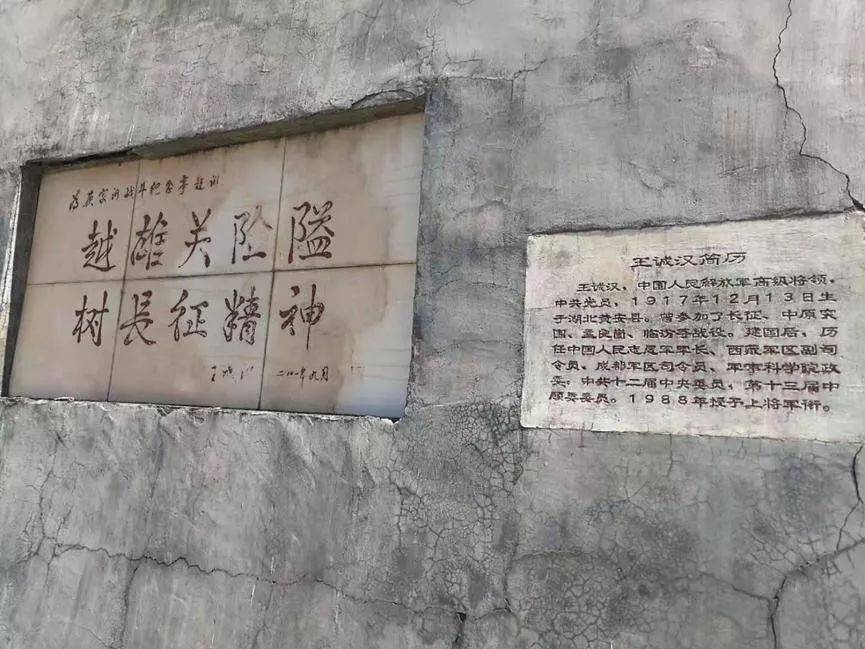 越雄关险隘
树長征精神
王诚汉简历
王诚汉，中国人民解放军高级将领，
中共党员，1917年12月13日生
于湖北黄安县。曾参加了长征、中原突
围、孟良崮、临汾等战役。建国后，历
任中国人民志愿军军长、西藏军区副司
令员，成都军区司令员、军事科学院政
委；中共十二届中央委员，第十三届中
顾委委员。1988年授予上将军衔。